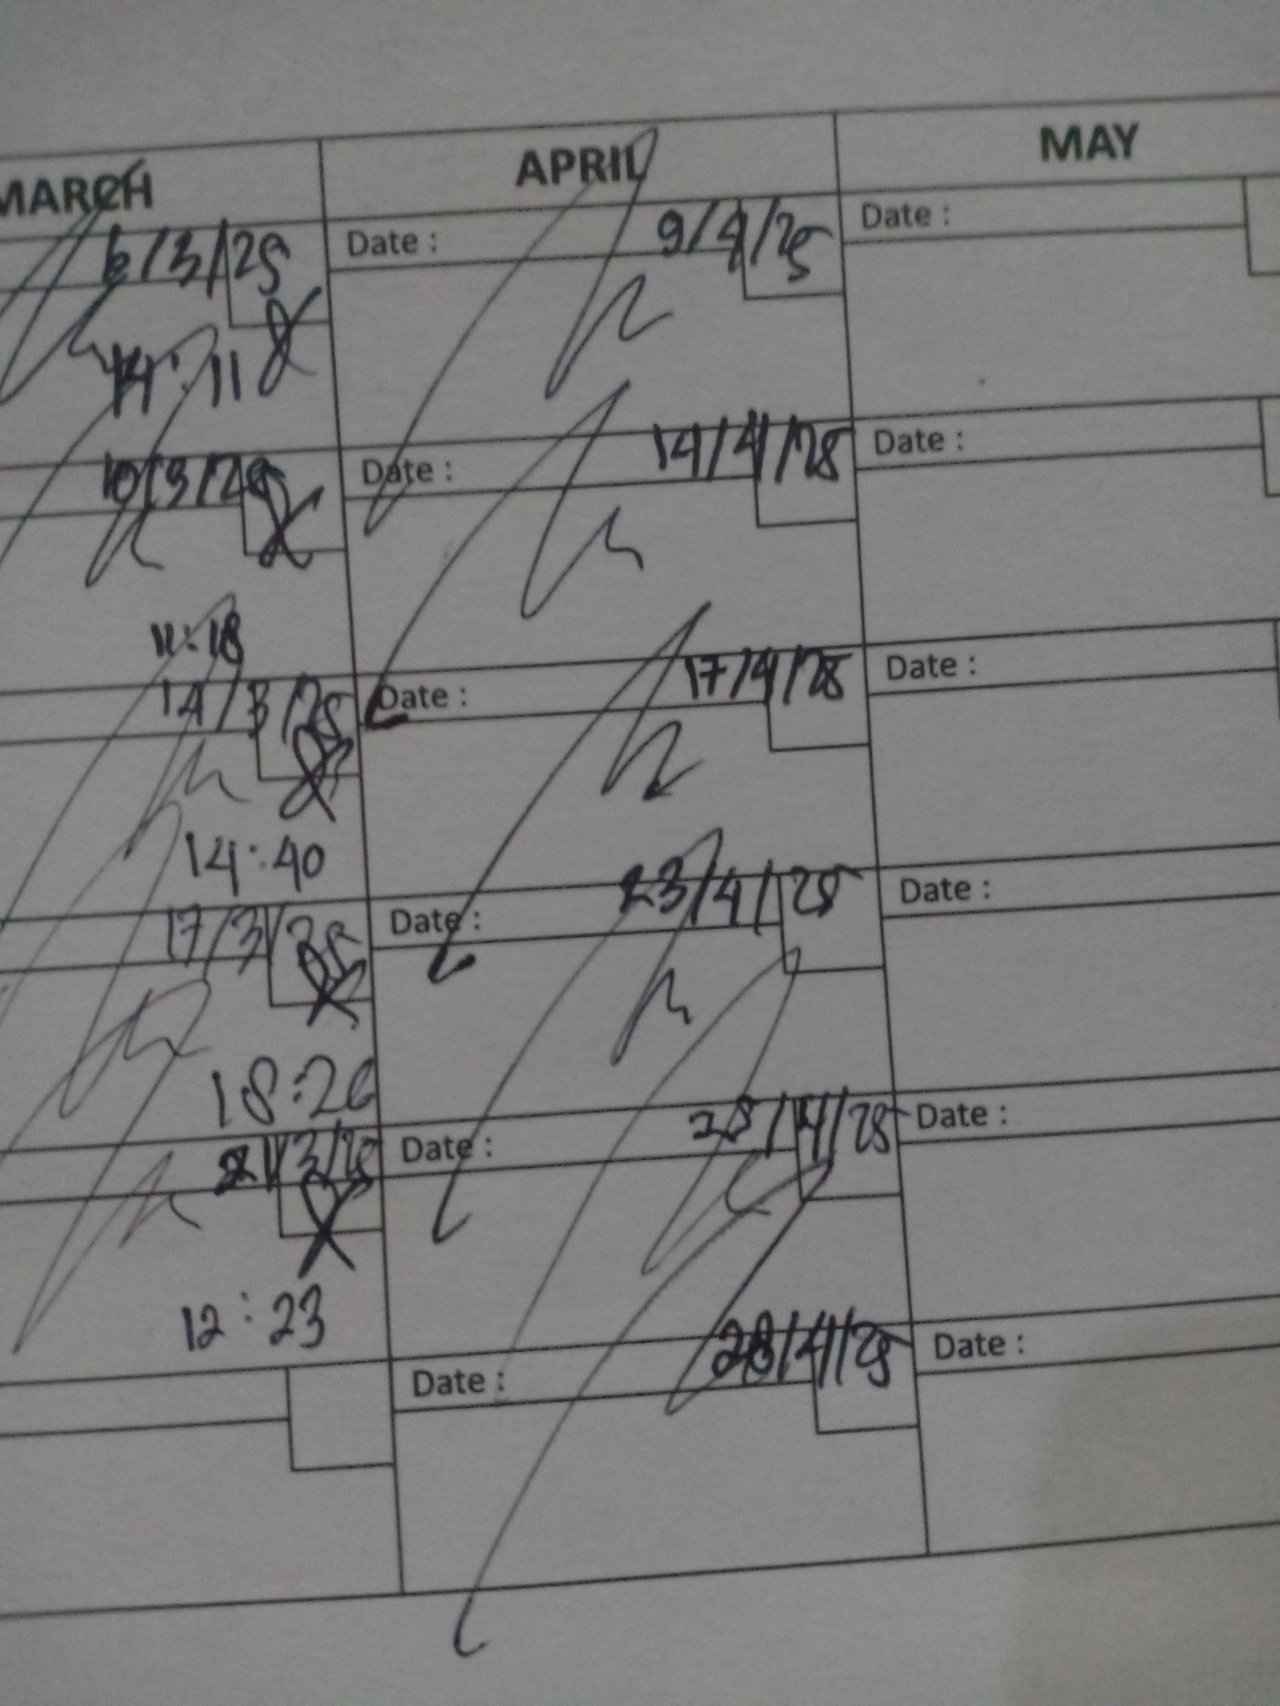 MARCH
6/3/25
14:11
10/3/25
11:18
14/3/25
14:40
17/3/25
18:26
21/3/25
12:23
APRIL
Date : 9/4/25
Date : 14/4/25
Date : 17/4/25
Date : 23/4/25
Date : 25/4/25
Date : 28/4/25
MAY
Date :
Date :
Date :
Date :
Date :
Date :